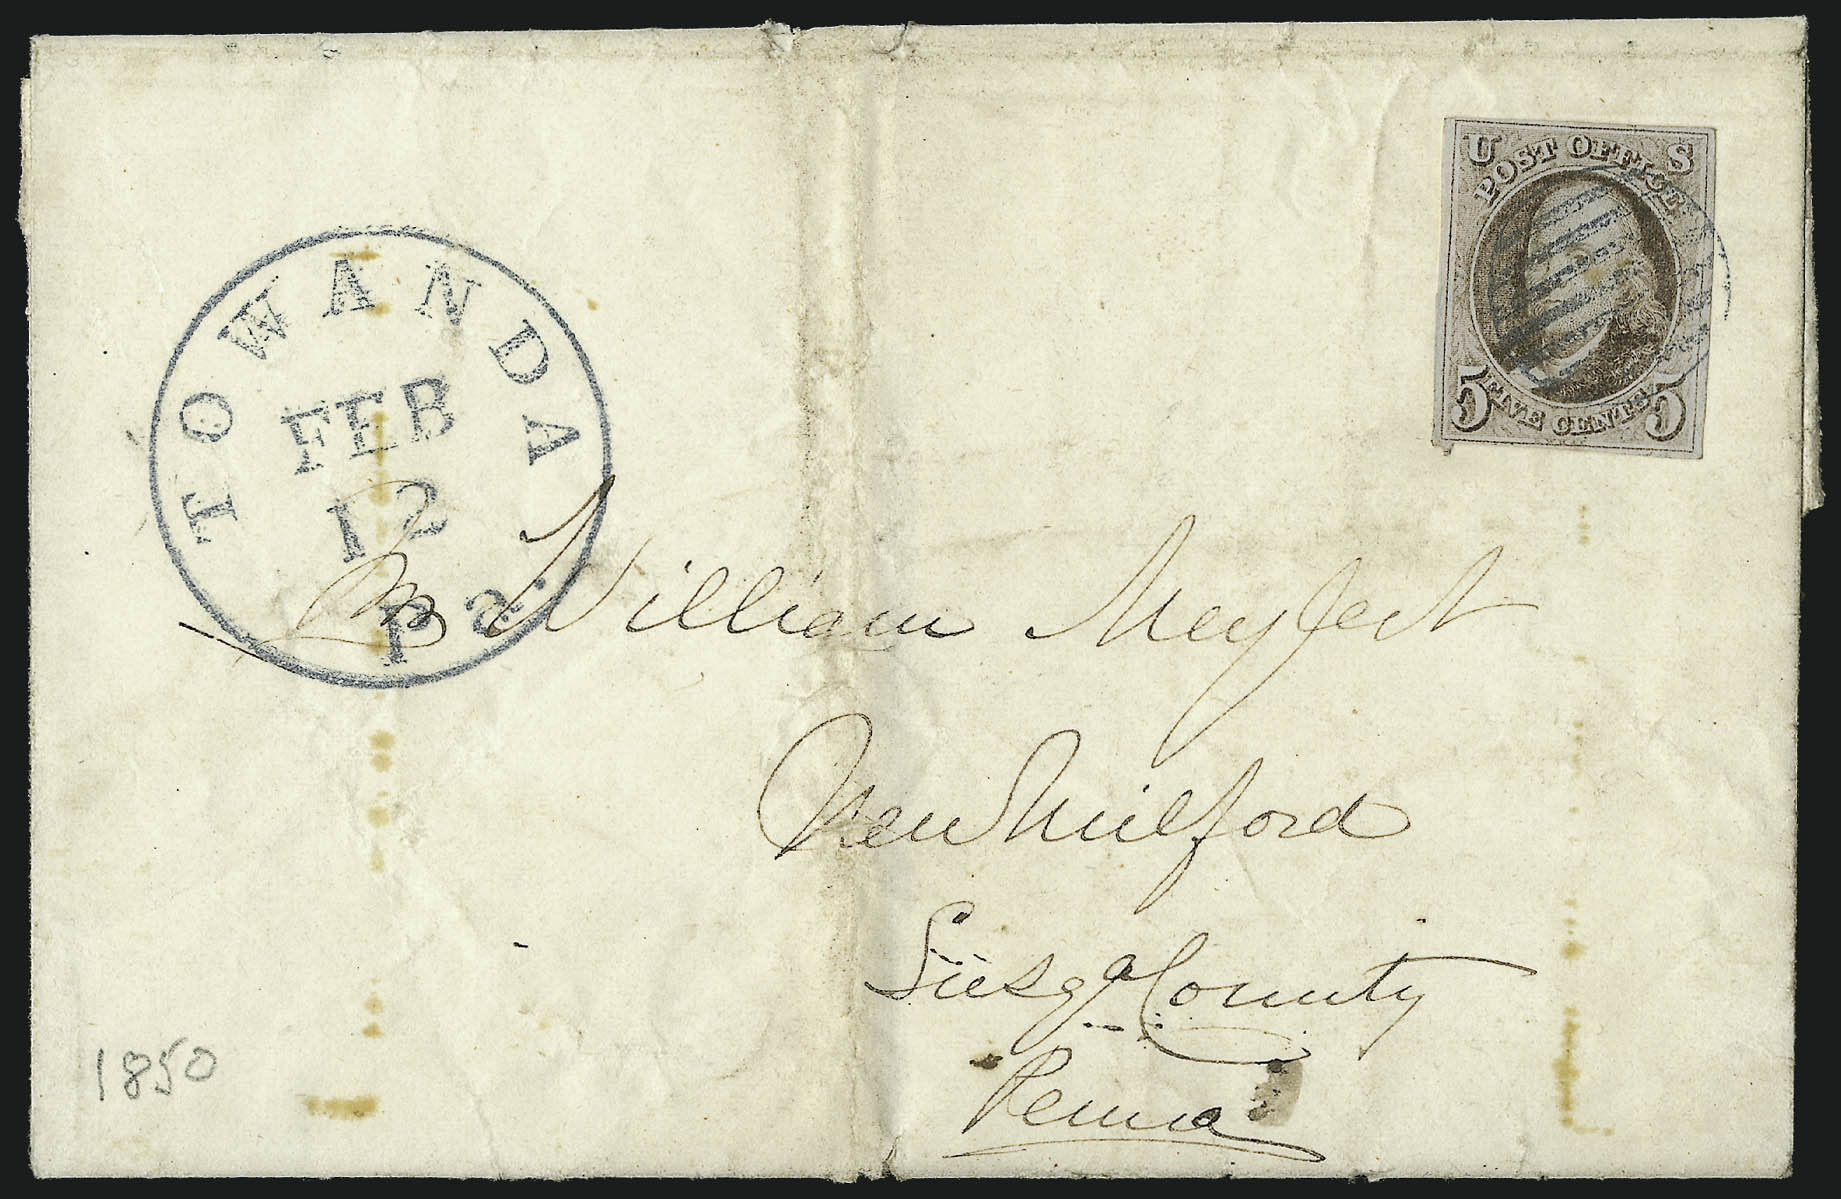 TOWANDA
FEB
12
Pa.
U S
POST OFFICE
5 FIVE CENTS 5
Mr William Meylert
New Milford
Susqa County
Penna
1850